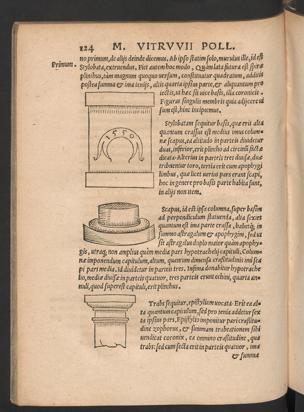 124 M. VITRVVII POLL.
no primum, de alijs deinde dicemus. Ab ipso statim solo, mox ulus ille, id est
Primum. Stylobata, extruendus. Fiet autem hoc modo. Quàm lata futura est spirae
plinthus, tàm magnum quoquo uersum, constituatur quadratum, additis
postea summa & ima tenijs, altis quarta ipsius parte, & aliquantum pro
iectis, ut hac sit uice basis, illa coronicis.
Figurae singulis membris quia adijcere ui
sum est, hinc incipiemus.
1550
Stylobatam sequitur basis, quae erit alta
quantum crassus est medius imus colum-
nae scapus, ea altitudo in pareis diuidatur
duas, inferior, erit plintho ad circinū facto
dicata. Alterius in pareis tres diuisae, duae
tribuentur toro, tertia erit cum apophygi
limbus, quae licet uerius pars erunt scapi,
hoc in genere pro basis parte habita sunt,
in alijs non item.
Scapus, id est ipse columnae, super basim
ad perpendiculum statuenda, alta sexies
quantum est ima parte crassa, habebit in
summo astragalum & apophygim, sed ut
sit astragalus duplo maior quàm apophy-
gis, utraque non amplius quàm media pars hypotrachelij capituli. Colum-
nae imponendum capitulum, altum, quantum dimidia crassitudinis imi sca
pi pars media. Id diuidetur in pareis tres. Infima donabitur hypotrache
lio, media diuisa in pareis quatuor, tres pareis erunt echini, quarta an-
nuli, quod superest capituli, erit plinthus.
Trabs sequitur, epistylium uocata. Erit ea al-
ta quantum capitulum, sed pro tenia addetur sex
ta ipsius pars. Epistylio imponitur pari crassitu-
dine zophorus, & summam trabeationem sibi
uendicat coronix, ea omnino crassitudine, qua
trabs: sed cum secta erit in pareis quatuor, ima
& summa